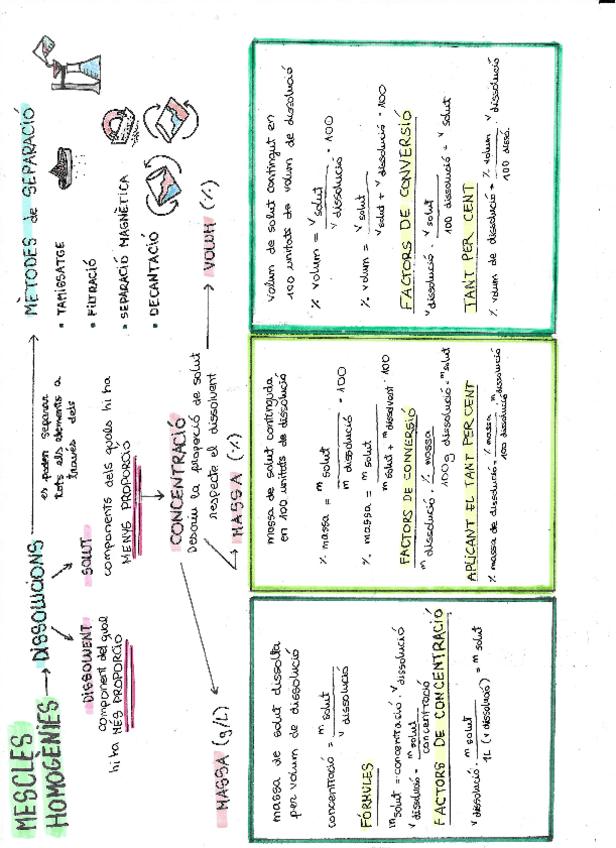 MESCLES
HOMOGÈNIES → DISSOLUCIONS
es poden separar
tots els elements a
través dels
MÈTODES de SEPARACIÓ
• TAMISSATGE
• FILTRACIÓ
• SEPARACIÓ MAGNÈTICA
• DECANTACIÓ
DISSOLVENT
component del qual
hi ha MÉS PROPORCIÓ
SOLUT
components dels quals hi ha
MENYS PROPORCIÓ
CONCENTRACIÓ
Descriu la proporció de solut
respecte el dissolvent
MASSA (g/L)
massa de solut dissolta
per volum de dissolució
concentració = m solut
v dissolució
FÓRMULES
m solut = concentració · v dissolució
v dissolució = m solut
concentració
FACTORS DE CONCENTRACIÓ
v dissolució · m solut = m solut
1L (v dissolució)
MASSA (%)
massa de solut continguda
en 100 unitats de dissolució
% massa = m solut · 100
m dissolució
% massa = m solut · 100
m solut + m dissolvent
FACTORS DE CONVERSIÓ
m dissolució · % massa = m solut
100g dissolució
APLICANT EL TANT PER CENT
% massa de dissolució = % massa · m dissolució
100 dissolució
VOLUM (%)
volum de solut contingut en
100 unitats de volum de dissolució
% volum = v solut · 100
v dissolució
% volum = v solut · 100
v solut + v dissolució
FACTORS DE CONVERSIÓ
v dissolució · v solut = v solut
100 dissolució
TANT PER CENT
% volum de dissolució = % volum · v dissolució
100 disso.